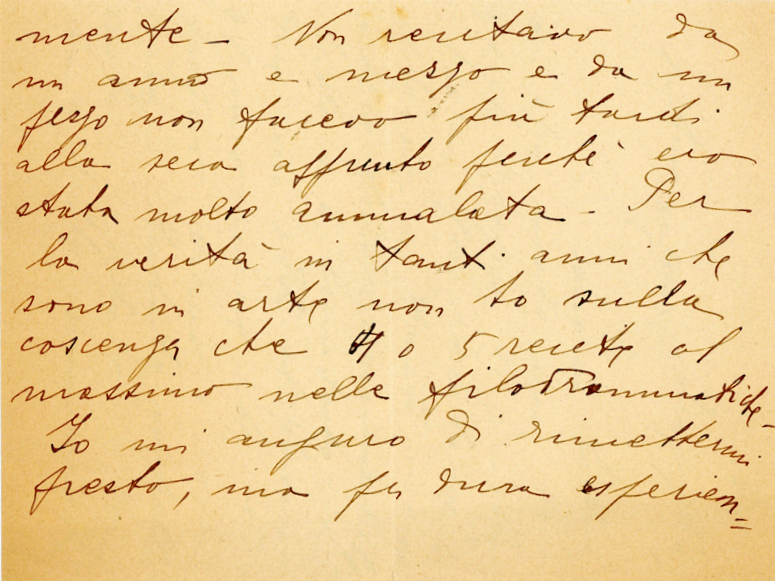 mente – Non recitavo da
un anno e mezzo e da un
pezzo non facevo più tardi
alla sera appunto perchè ero
stata molto ammalata – Per
la verità in tanti anni che
sono in arte non ho sulla
coscenza che 4 o 5 recite al
massimo nelle filodrammatiche –
Io mi auguro di rimettermi
presto, ma fu dura esperien=